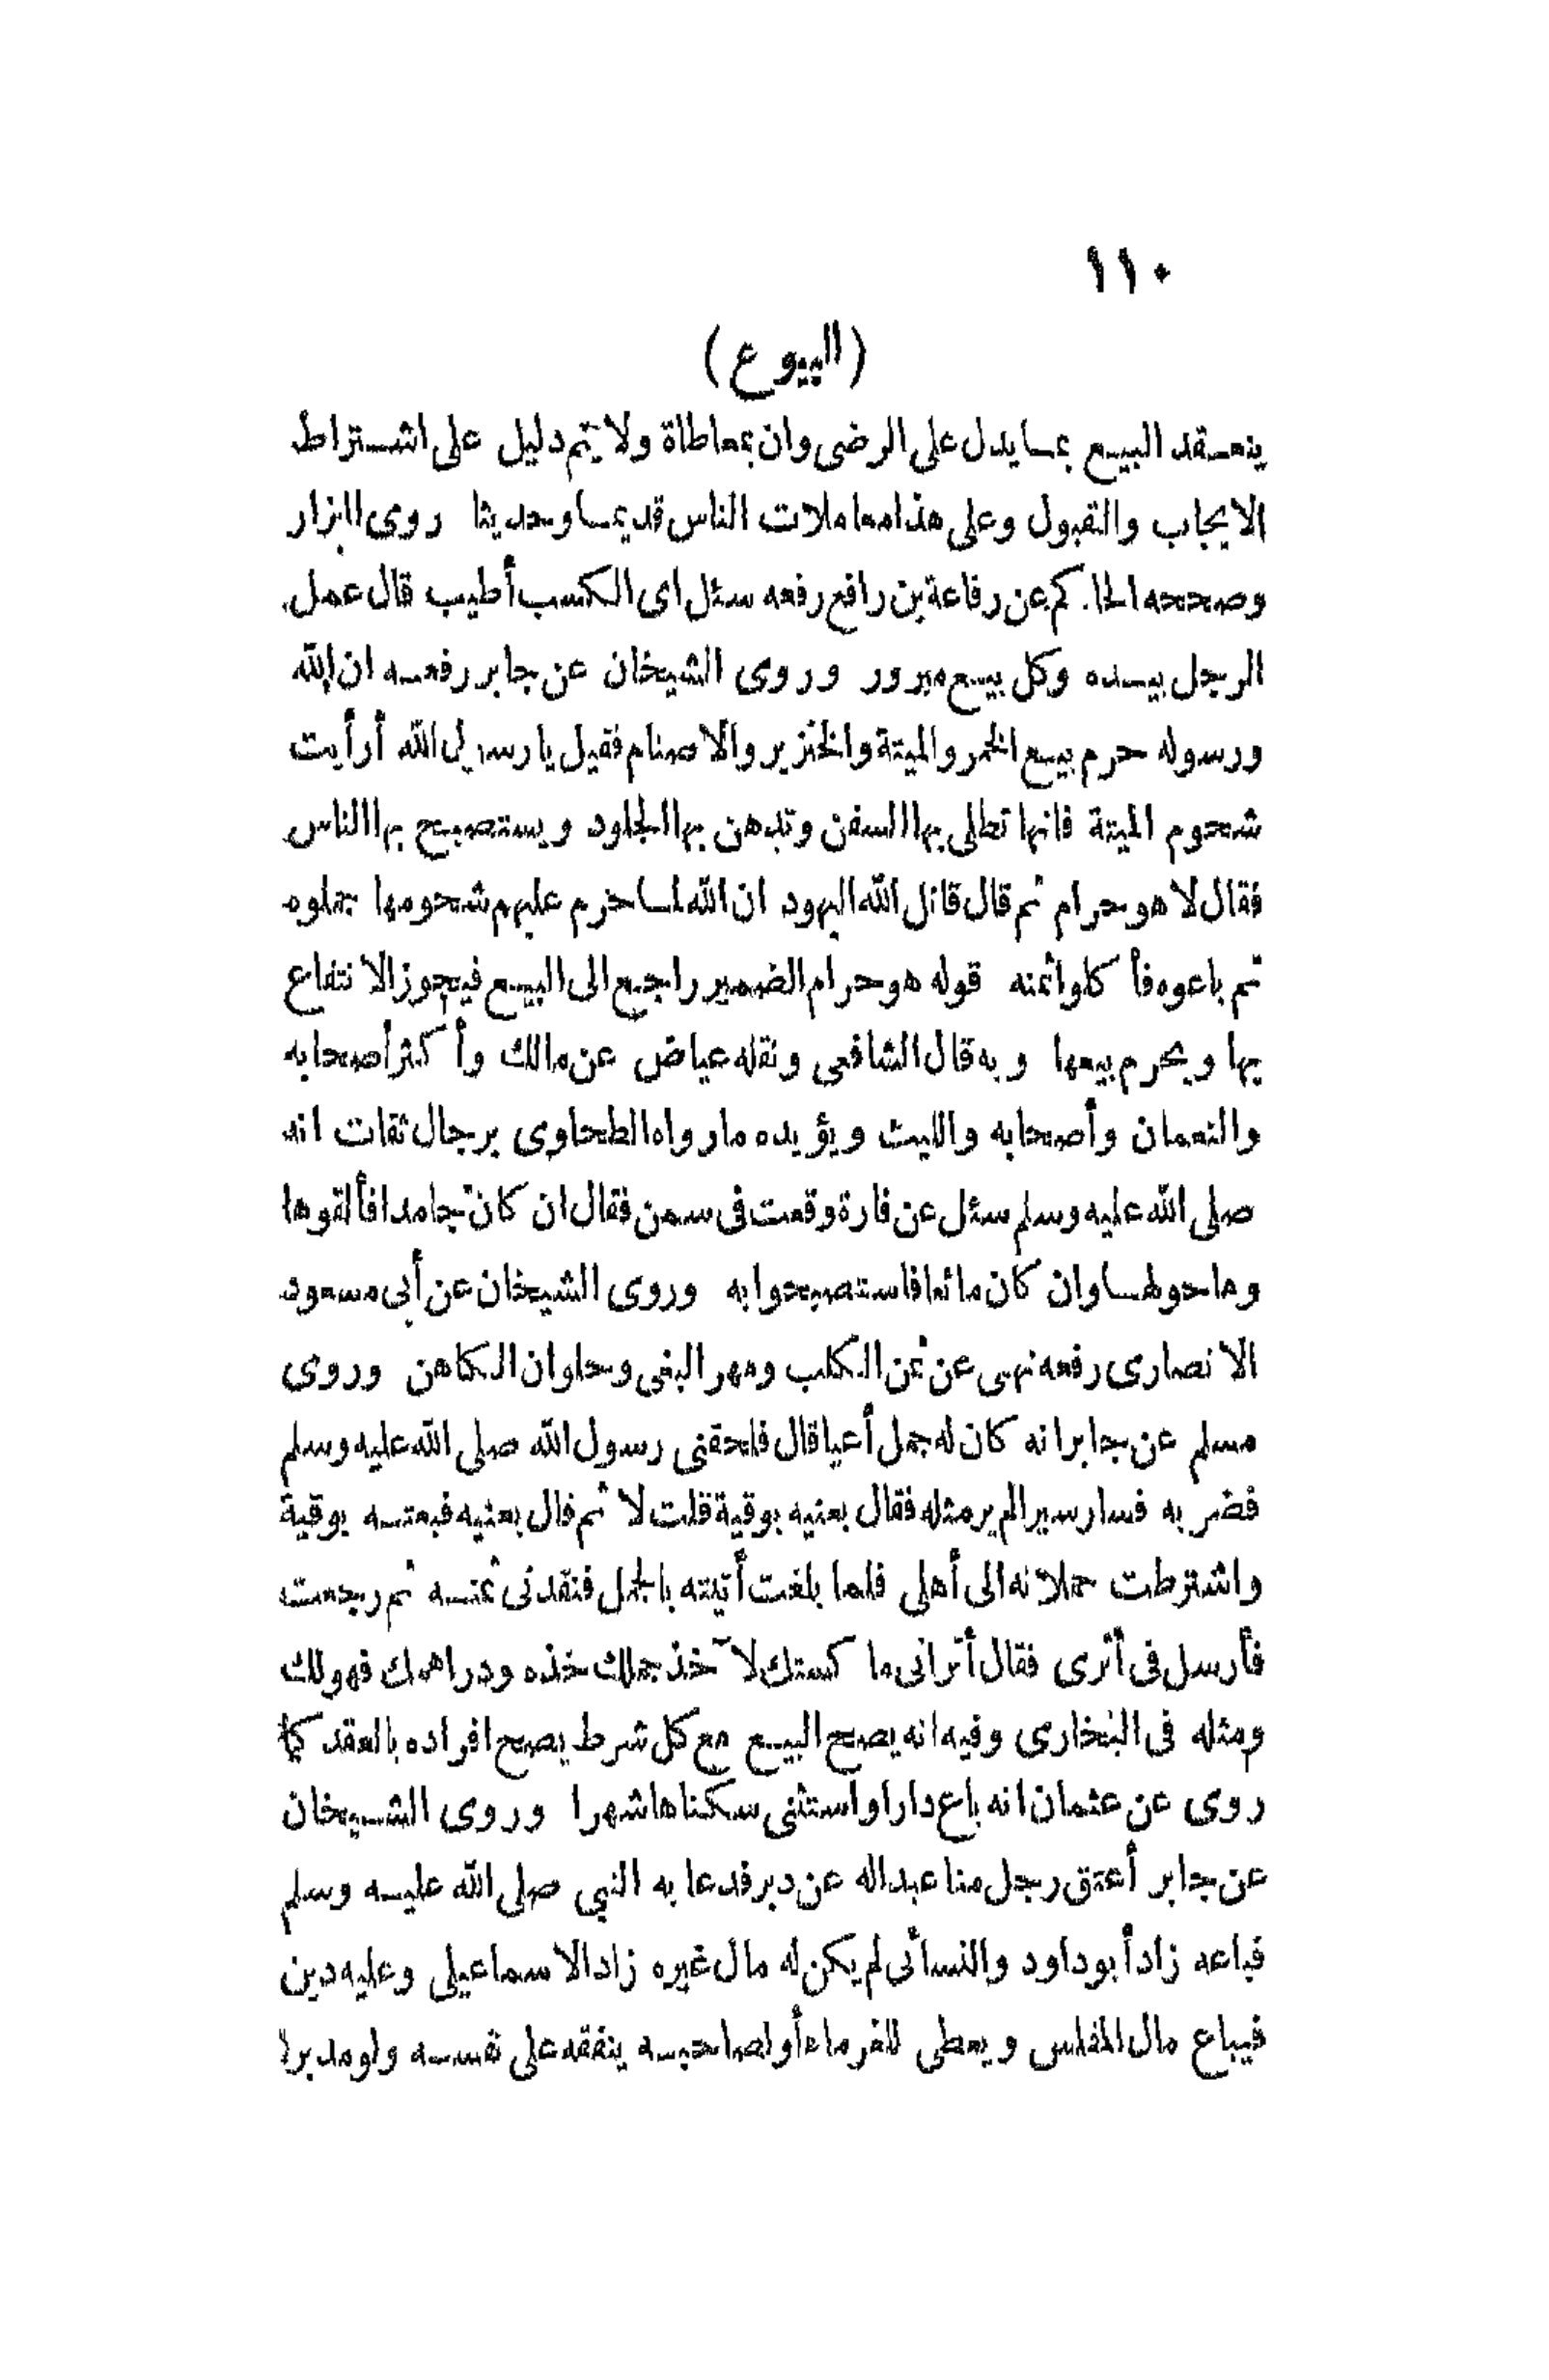 ١١٠
(البيوع)
ينعقد البيع بما يدل على الرضى وان بمعاطاة ولا يتم دليل على اشتراط
الايجاب والقبول وعلى هذا معاملات الناس قديما وحديثا روى البزار
وصححه الحاكم عن رفاعة بن رافع رفعه سئل اى الكسب أطيب قال عمل
الرجل بيده وكل بيع مبرور وروى الشيخان عن جابر رفعه ان الله
ورسوله حرم بيع الخمر والميتة والخنزير والاصنام فقيل يا رسول الله أرأيت
شحوم الميتة فانها تطلى بها السفن وتدهن بها الجلود ويستصبح بها الناس
فقال لا هو حرام ثم قال قاتل الله اليهود ان الله لما حرم عليهم شحومها جملوه
ثم باعوه فأكلوا ثمنه قوله هو حرام الضمير راجع الى البيع فيجوز الانتفاع
بها ويحرم بيعها وبه قال الشافعى ونقله عياض عن مالك وأكثر أصحابه
والنعمان وأصحابه والليث ويؤيده ما رواه الطحاوى برجال ثقات انه
صلى الله عليه وسلم سئل عن فارة وقعت فى سمن فقال ان كان جامدا فألقوها
وما حولها وان كان مائعا فاستصبحوا به وروى الشيخان عن أبى مسعود
الانصارى رفعه نهى عن ثمن الكلب ومهر البغى وحلوان الكاهن وروى
مسلم عن جابر انه كان له جمل أعيا قال فلحقنى رسول الله صلى الله عليه وسلم
فضربه فسار سيرا لم ير مثله فقال بعنيه بوقية قلت لا ثم قال بعنيه فبعته بوقية
واشترطت حملانه الى أهلى فلما بلغت أتيته بالجمل فنقدنى ثمنه ثم رجعت
فأرسل فى أثرى فقال أترانى ما كستك لآخذ جملك خذه ودراهمك فهو لك
ومثله فى البخارى وفيه انه يصح البيع مع كل شرط يصح افراده بالعقد كما
روى عن عثمان انه باع دارا واستثنى سكناها شهرا وروى الشيخان
عن جابر أعتق رجل منا عبدا له عن دبر فدعا به النبي صلى الله عليه وسلم
فباعه زاد أبو داود والنسائى لم يكن له مال غيره زاد الاسماعيلى وعليه دين
فيباع مال المفلس ويعطى للغرماء أو لصاحبه ينفقه على نفسه ولو مدبرا